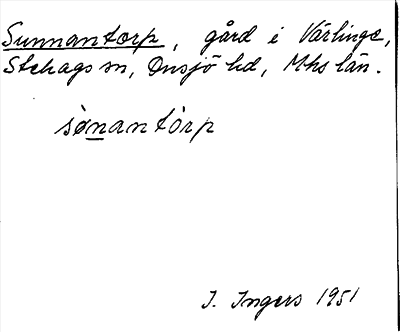 Sunnantorp, gård i Värlinge,
Stehags sn, Onsjö hd, Mhs län.
sønantòrp
I. Ingers 1951